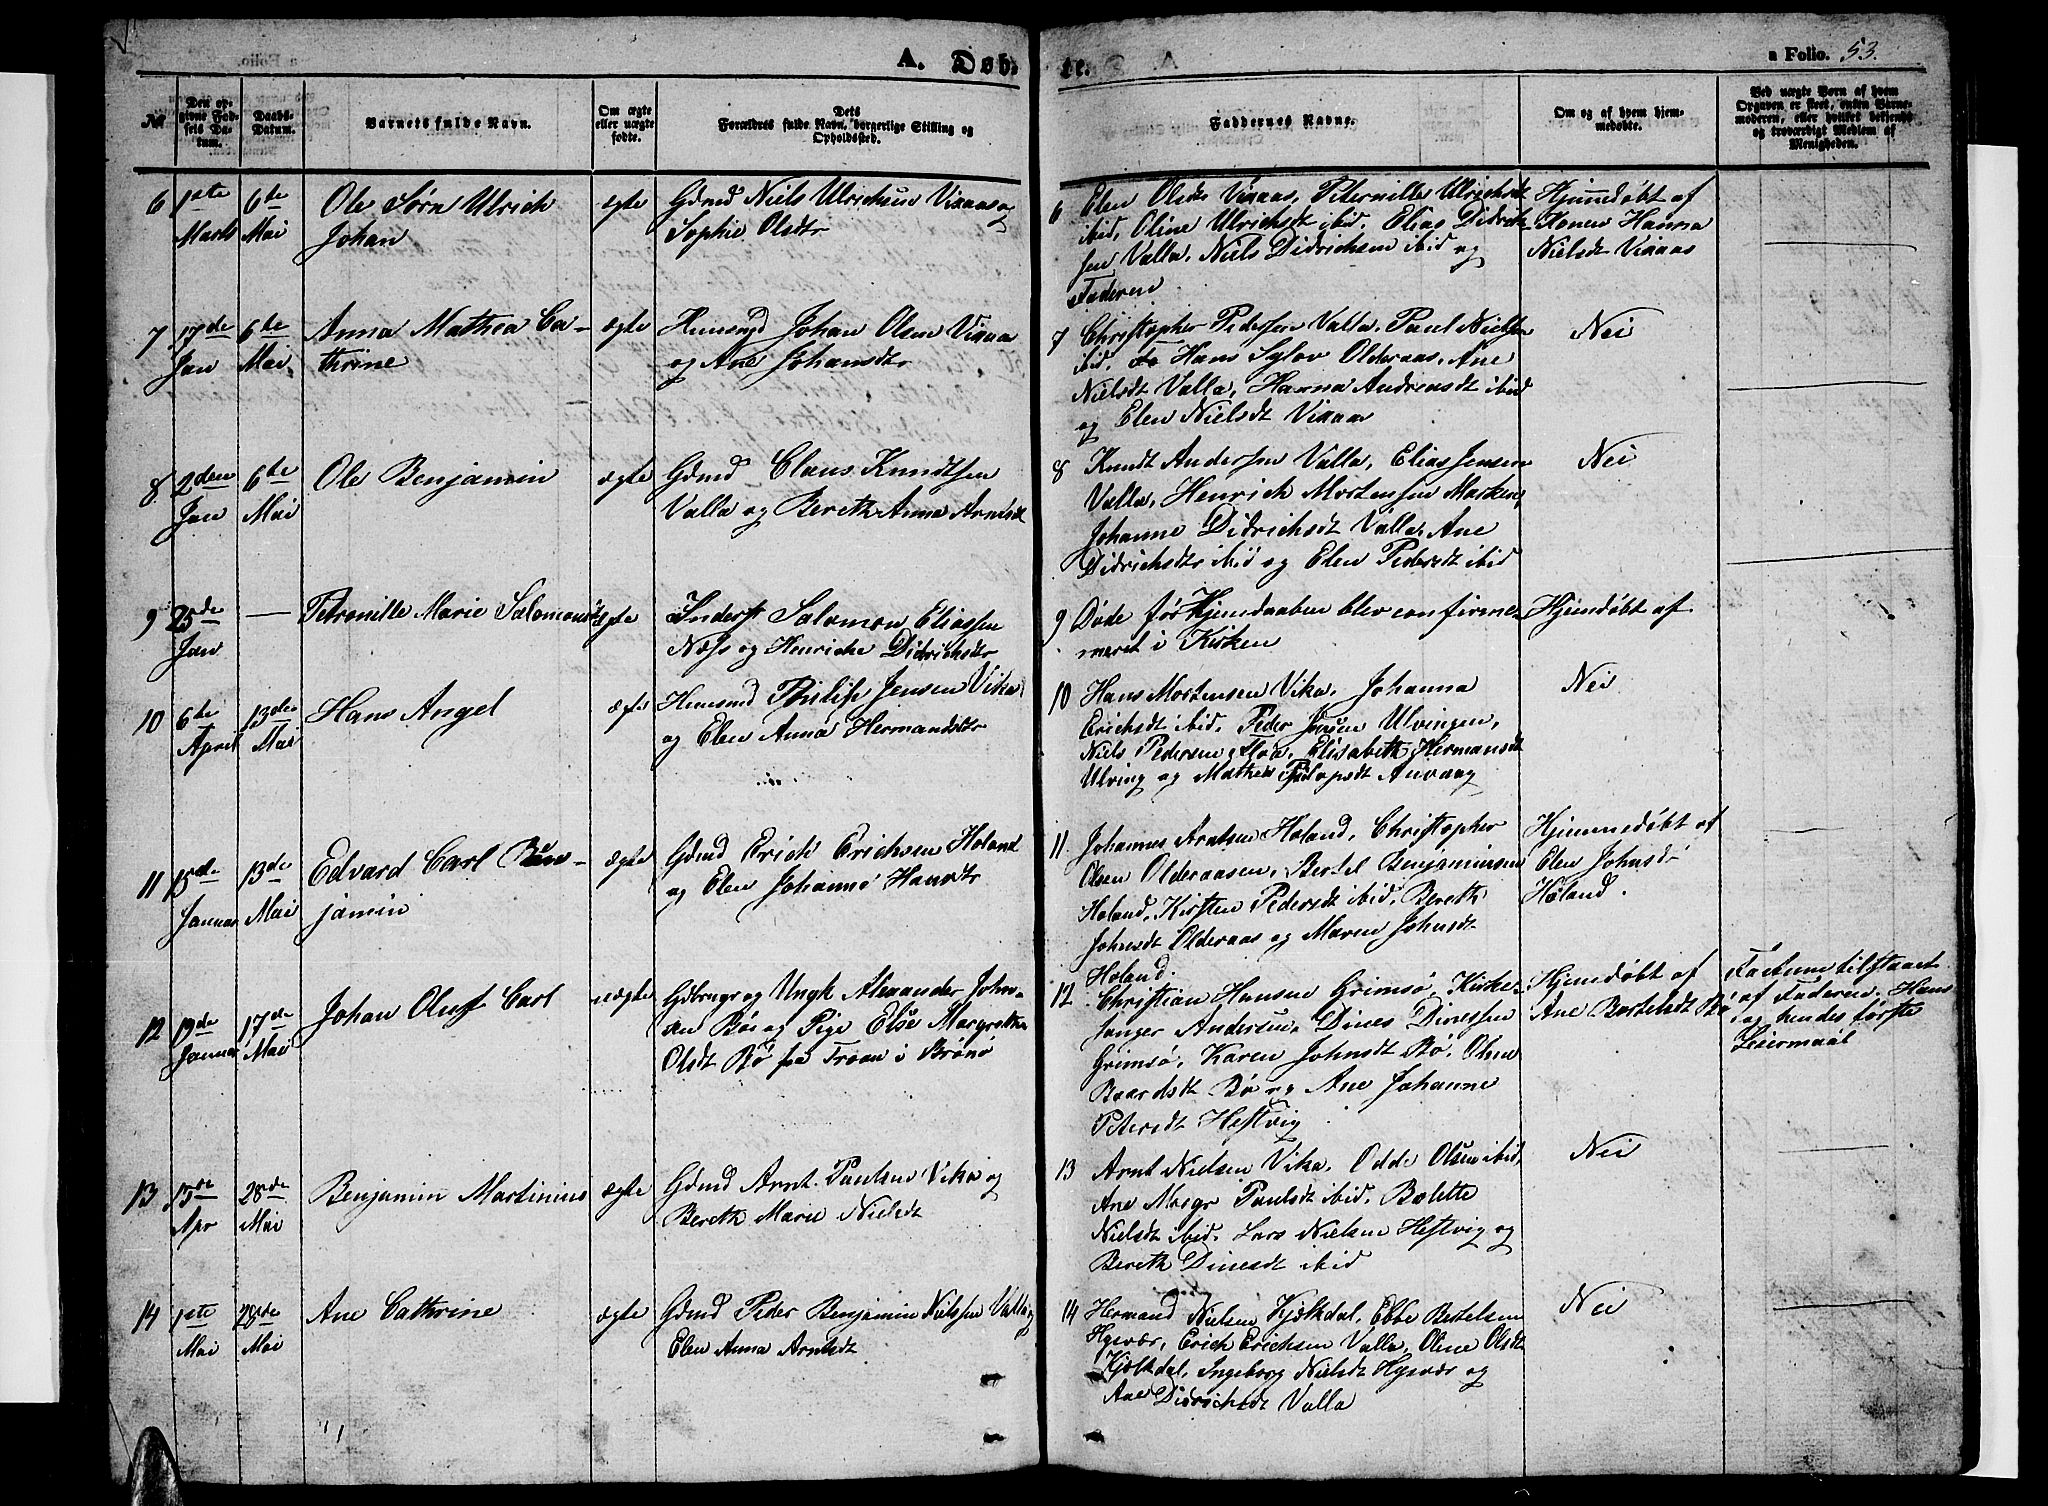 A. Døb-
te.
a Folio. 53.
No
Den op-
givne Fød-
sels Da-
tum.
Daabs-
Datum.
Barnets fulde Navn.
Om ægte
eller uægte
fødte.
Dets
Forældres fulde Navn, borgerlige Stilling og
Opholdssted.
Faddernes Navne.
Om og af hvem hjem-
medøbte.
Ved uægte Børn af hvem
Opgaven er skeet, enten Barne-
moderen, eller hvilket bekjendt
og troværdigt Medlem af
Menigheden.
6 1ste Marts
6te Mai
Ole Sørn Ulrich
Johan
ægte
Gdmd Niels Ulrichsen Vixaas og
Sophie Olsdtr
6 Elen Olsdt Vixaas, Peternille Ulrichsdt
ibid, Oline Ulrichsdt ibid. Elias Didrich-
sen Valla, Niels Didrichsen ibid og
Faderen
Hjemmedøbt af
Konen Hanna
Nielsdt Vixaas
7 17de Jan
6te Mai
Anna Mathea Ca-
thrine
ægte
Huusmd Johan Olsen Vixaas
og Ane Johansdtr
7 Christopher Pedersen Valla, Paul Nielsen
ibid, Hans Sylov Olderaas, Ane
Nielsdt Valla, Hanna Andreasdt ibid
og Elen Nielsdt Vixaas
Nei
8 2den Jan
6te Mai
Ole Benjamin
ægte
Gdmd Claus Knudtsen
Valla og Bereth Anna Arntsdt
8 Knudt Andersen Valla, Elias Jensen
Valla, Henrich Mortensen
Johanne Didrichsdt Valla, Ane
Didrichsdtr ibid og Elen Pedersdt ibid
Nei
9 25de Jan
Petronille Marie Salomonsdt
ægte
Inderst Salomon Eliassen
Næss og Henriche Didrichsdtr
9 Døde før Hjemdaaben blev confirme-
meret i Kirken
Hjemdøbt af
10 6te April
13de Mai
Hans Angel
ægte
Huusmd Philip Jensen Vika
og Elen Anna Hermandsdtr
10 Hans Mortensen Vika, Johanna
Erichsdt ibid, Peder Jensen Ulvingen,
Niels Pedersen Floa, Elisabeth Hermansdt
Ulving og Mathea Philopsdt
Nei
11 15de Januar
13de Mai
Edvard Carl Ben-
jamin
ægte
Gdmd Erich Erichsen Høland
og Elen Johanna Hansdtr
11 Johannes Arntsen Høland, Christopher
Olsen Olderaasen, Bertel Benjaminsen
Høland, Kirsten Pedersdt ibid, Bereth
Johnsdt Olderaas og Maren Johnsdt
Høland.
Hjemmedøbt af
Elen Johnsdt
Høland.
12 19de Januar
17de Mai
Johan Oluf Carl
uægte
Gdbruger og Ungk Alexander John-
sen Bø og Pige Else Margrethe
Olsdt Bø fra Troen i Brønø
12 Christian Hansen Grimsø, Kirke-
sanger Andersen, Dines Dinessen
Grimsø, Karen Johnsdt Bø, Olava
Baardsdt Bø og Ane Johanne
Petersdt Hestvig
Hjemdøbt af
Ane Bertelsdt Bø
Factum tilstaaet
af Faderen. Hans
og hendes første
Leiermaal
13 15de Apr
28de Mai
Benjamin Martinius
ægte
Gdmd Arnt Paulsen Vika og
Bereth Marie Nielsdt
13 Arnt Nielsen Vika, Odde Olsen ibid,
Ane Margr Paulsdt ibid, Bolette
Nielsdt ibid, Lars Nielsen Hestvig og
Bereth Dinesdt ibid
Nei
14 1ste Mai
28de Mai
Ane Cathrine
ægte
Gdmd Peder Benjamin Nielssen Valla og
Elen Anna Arntsdt
14 Hermand Nielsen Kjølkdal, Ebbe Bertelsen
Hysvær, Erich Erichsen Valla, Oline Olsdt
Kjølkdal, Ingeborg Nielsdt Hysvær og
Ane Didrichsdt Valla
Nei